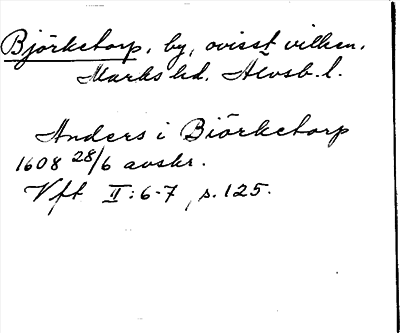 Björketorp, by, ovisst vilken.
Marks hd. Älvsb. l.
Anders i Biörketorp
1608 28/6 avskr.
Vft II:6-7, s. 125.